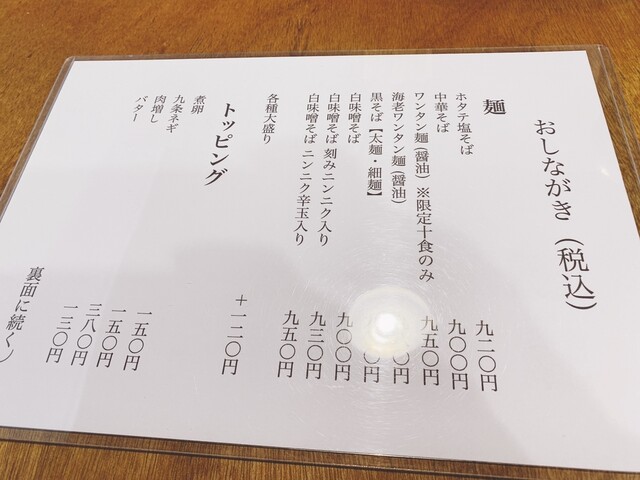 おしながき (税込)
麺
ホタテ塩そば 九二〇円
中華そば 九〇〇円
ワンタン麺 (醤油) ※限定十食のみ 九五〇円
海老ワンタン麺 (醤油)
黒そば【太麺・細麺】
白味噌そば 九〇〇円
白味噌そば 刻みニンニク入り 九三〇円
白味噌そば ニンニク辛玉入り 九五〇円
各種大盛り +一二〇円
トッピング
煮卵 一五〇円
九条ネギ 一五〇円
肉増し 三八〇円
バター 一三〇円
裏面に続く)